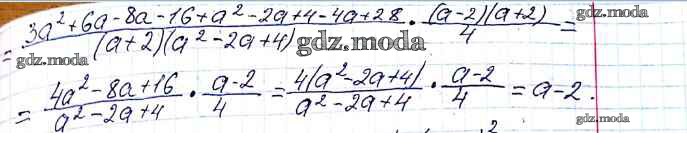 = (3a² + 6a - 8a - 16 + a² - 2a + 4 - 4a + 28) / ((a+2)(a² - 2a + 4)) · (a-2)(a+2) / 4 =
gdz.moda gdz.moda
= (4a² - 8a + 16) / (a² - 2a + 4) · (a-2) / 4 = 4(a² - 2a + 4) / (a² - 2a + 4) · (a-2) / 4 = a - 2 .
gdz.moda